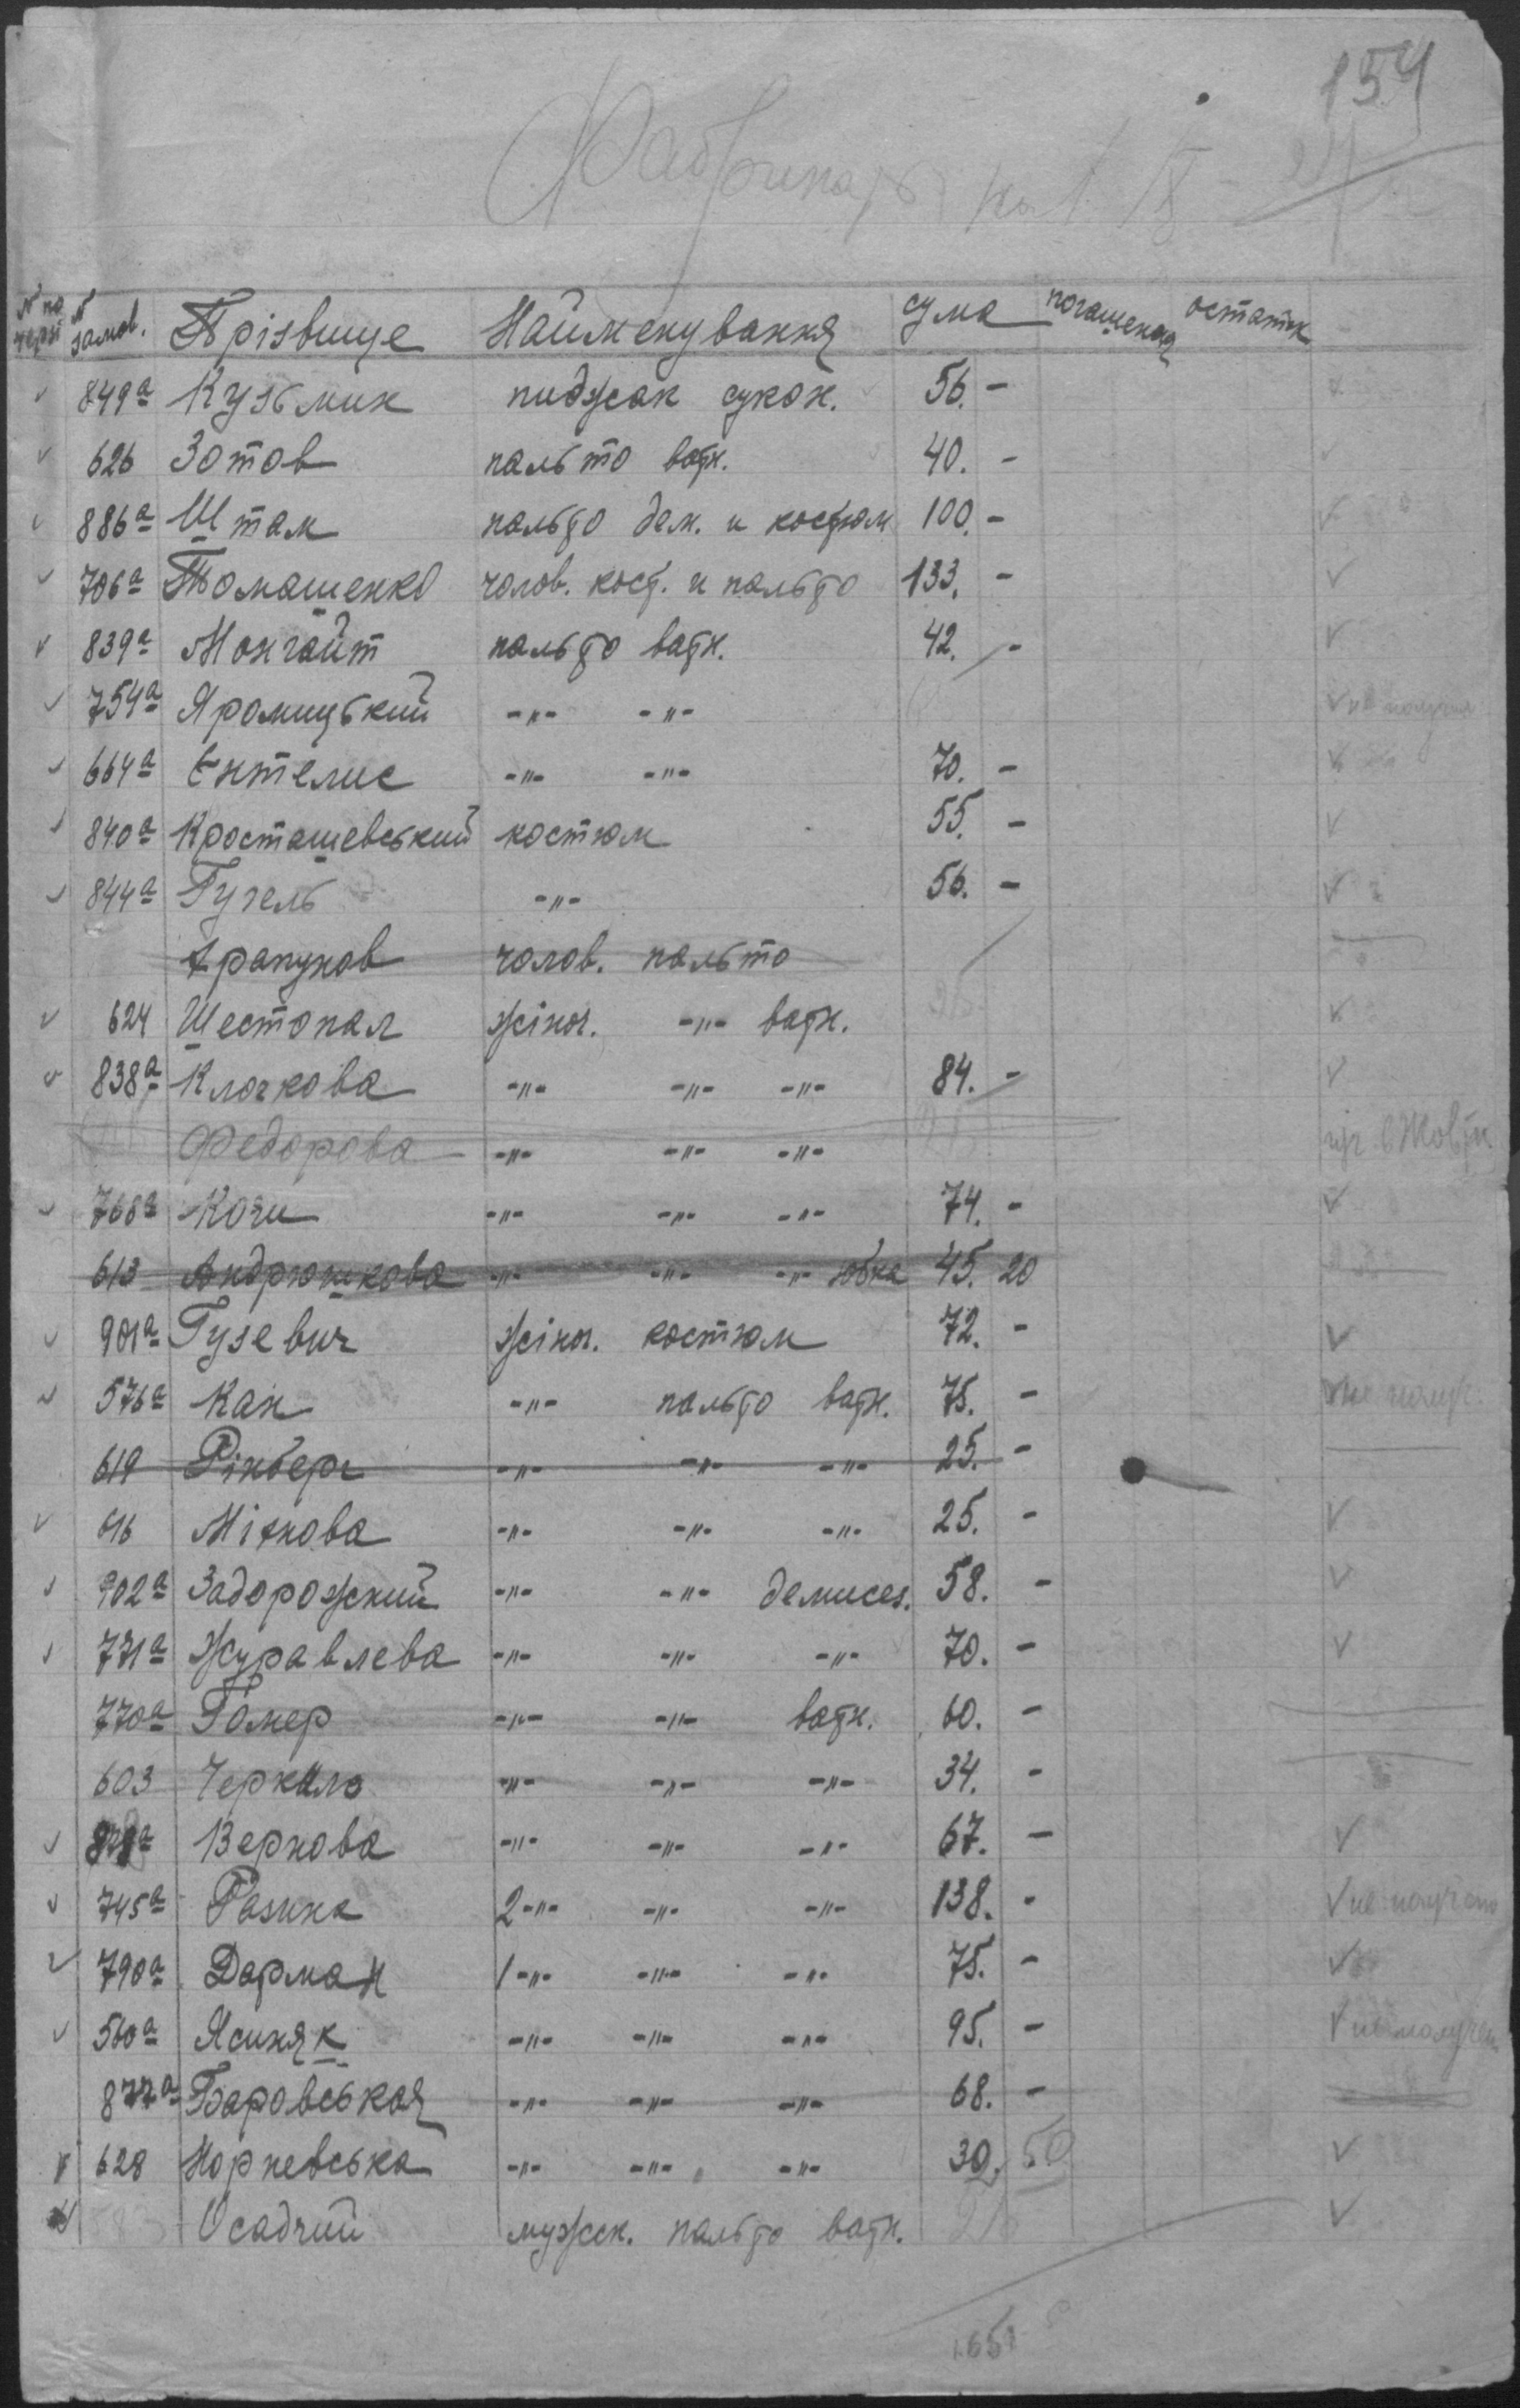 154
№ по черзі № замов. Прізвище Найменування сума погашення остаток
849а Кузьмик пиджак сукон. 56. -
626 Зотов пальто ватн. 40. -
886а Штам пальто дем. и костюм 100. -
706а Томашенко чолов. кост. и пальто 133. -
839а Монгайт пальто ватн. 42. -
754а Яромицький -"- -"-
664а Ентелис -"- -"- 70. -
840а Кросташевський костюм 55. -
844а Гугель -"- 56. -
чолов. пальто
624 Шестопал жіноч. -"- ватн.
838а Клочкова -"- -"- -"- 84. -
Федорова -"- -"- -"-
768а Коги -"- -"- -"- 74. -
613 Андрюшкова -"- -"- -"- юбка 45. 20
901а Гузевич жіноч. костюм 72. -
576а Кан -"- пальто ватн. 75. - не получ.
619 Рінберг -"- -"- -"- 25. -
616 Мітнова -"- -"- -"- 25. -
902а Задорожский -"- -"- демисез. 58. -
771а Журавлева -"- -"- -"- 70. -
770а Гомер -"- -"- ватн. 60. -
603 Черкало -"- -"- -"- 34. -
Вернова -"- -"- -"- 67. -
745а Разина 2-"- -"- -"- 138. - не получ
790а Дарман 1-"- -"- -"- 75. -
560а Ясиняк -"- -"- -"- 95. - не получен
877а Баровськая -"- -"- -"- 68. -
628 Норневська -"- -"- -"- 30. 50
Осадчий мужск. пальто ватн.